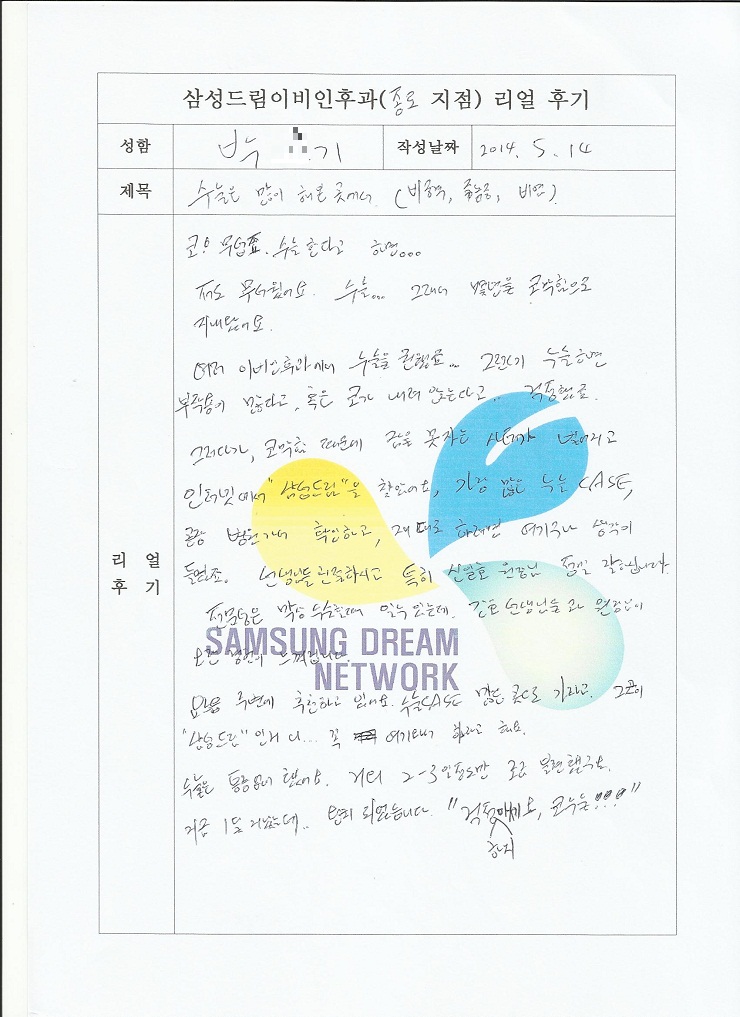 삼성드림이비인후과(종로 지점) 리얼 후기
성함 박 기 작성날짜 2014. 5. 14
제목 수술은 많이 해본 곳에서. (비중격, 축농증, 비염).
코! 무섭죠. 수술한다고 하면...
저도 무서웠어요. 수술... 그래서 몇년을 코막힘으로
지내왔어요.
여러 이비인후과에서 수술을 권했죠... 그런데 수술하면
부작용이 많다고, 혹은 코가 내려 앉는다고.. 걱정했죠.
그러다가, 코막힘 때문에 잠을 못자는 사태가 벌어지고
인터넷에서 "삼성드림"을 찾았어요, 가장 많은 수술 CASE,
병원가서 확인하고, 제대로 하려면 여기구나 생각이
들었죠. 선생님들 친절하시고 특히 신일호 원장님 정말 감사합니다.
전문성은 막상 수술할때 알수 있는데. 간호선생님들과 원장님이
오랜 경험이 느껴집니다.
요즘 주변에 추천하고 있어요. 수술CASE 많은 곳으로 가라고. 그곳이
"삼성드림"인거니... 꼭 여기 가라고 해요.
수술은 통증없이 했어요. 거의 2-3일정도만 조금 불편했구요.
지금 1달 지났는데.. 완쾌 되었습니다. "걱정하지마세요, 코수술!!!"
리 얼
후 기
SAMSUNG DREAM
NETWORK